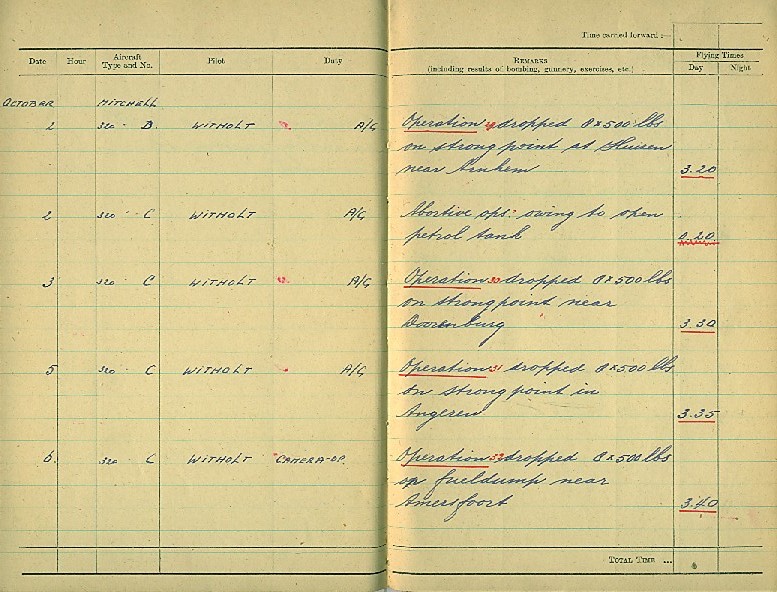 Time carried forward :—
Date Hour Aircraft Type and No. Pilot Duty REMARKS (including results of bombing, gunnery, exercises, etc.) Flying Times Day Night
OCTOBER MITCHELL
2 320 - D. WITHOLT A/G Operation dropped 8x500 lbs
on strong point at Huisen
near Arnhem 3.20
2 320 - C WITHOLT A/G Abortive ops: owing to open
petrol tank 0.20
3 320 - C WITHOLT A/G Operation 30 dropped 8x500 lbs
on strongpoint near
Doorenburg 3.30
5 320 - C WITHOLT A/G Operation 31 dropped 8x500 lbs
on strong point in
Angeren 3.35
6. 320 C WITHOLT CAMERA-OP. Operation 32 dropped 8x500 lbs
on fueldump near
Amersfoort 3.40
TOTAL TIME ...